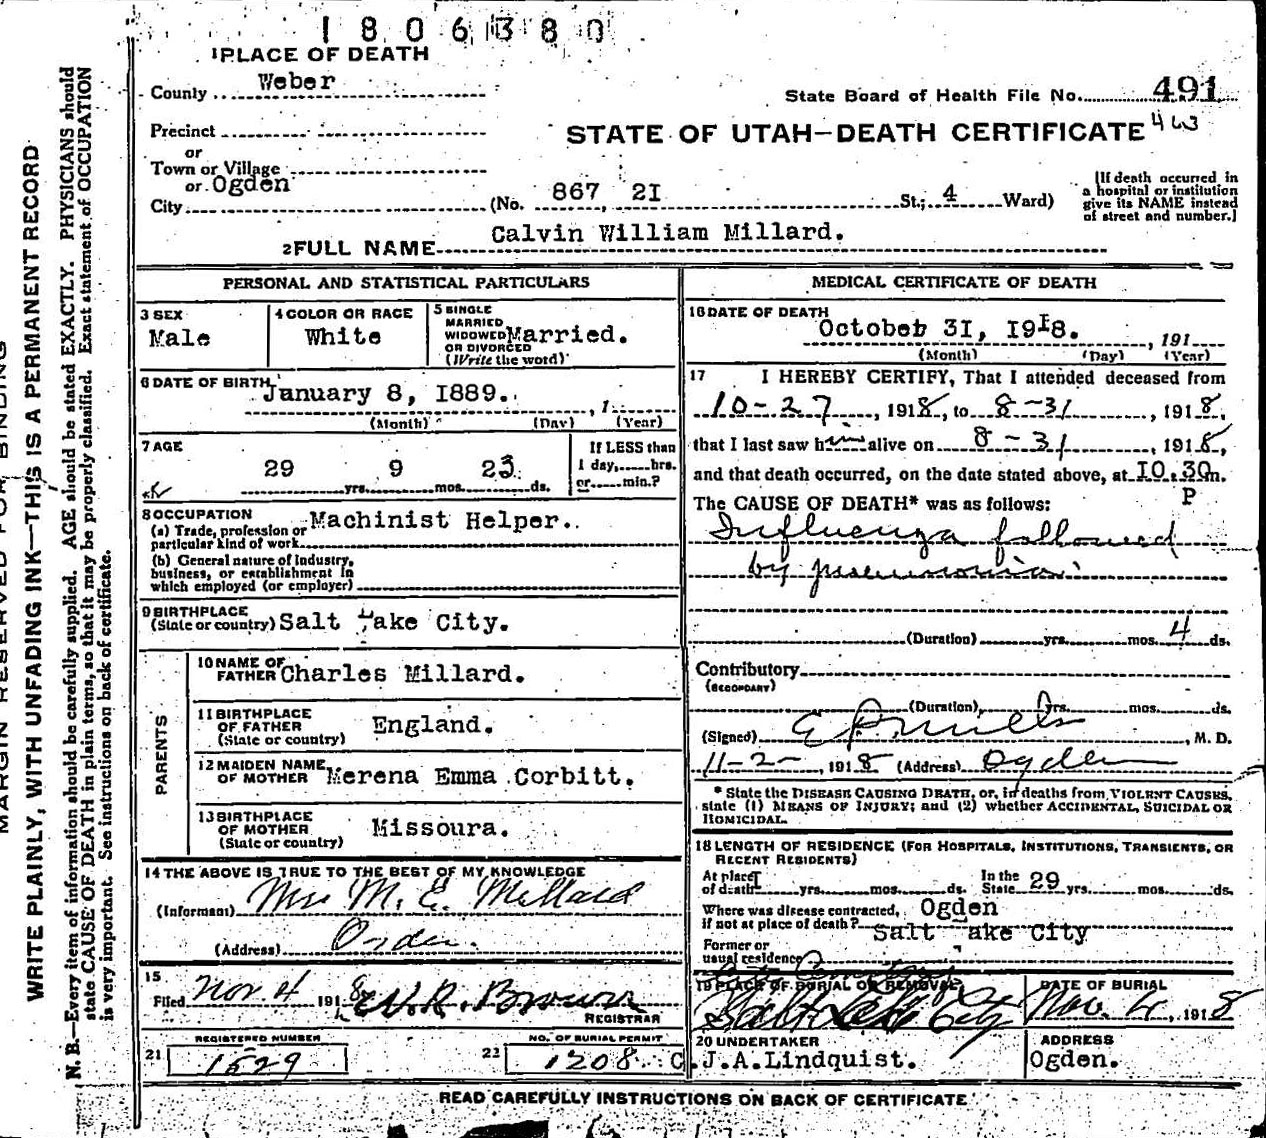 1806380
1 PLACE OF DEATH
County Weber
State Board of Health File No. 491
Precinct
STATE OF UTAH—DEATH CERTIFICATE 463
or
Town or Village
or Ogden
City (No. 867 2I St; 4 Ward)
[If death occurred in
a hospital or institution
give its NAME instead
of street and number.]
2 FULL NAME Calvin William Millard.
PERSONAL AND STATISTICAL PARTICULARS
3 SEX
Male
4 COLOR OR RACE
White
5 SINGLE
MARRIED
WIDOWED Married.
OR DIVORCED
(Write the word)
6 DATE OF BIRTH January 8, I889. , 1
(Month) (Day) (Year)
7 AGE
29 yrs. 9 mos. 23 ds.
If LESS than
1 day, hrs.
or min.?
8 OCCUPATION Machinist Helper.
(a) Trade, profession or
particular kind of work
(b) General nature of industry,
business, or establishment in
which employed (or employer)
9 BIRTHPLACE
(State or country) Salt Lake City.
PARENTS
10 NAME OF
FATHER Charles Millard.
11 BIRTHPLACE
OF FATHER England.
(State or country)
12 MAIDEN NAME
OF MOTHER Merena Emma Corbitt.
13 BIRTHPLACE
OF MOTHER Missoura.
(State or country)
14 THE ABOVE IS TRUE TO THE BEST OF MY KNOWLEDGE
(Informant) Mrs M. E. Millard
(Address) Ogden.
15
Filed Nov 4 191 8 Brown
REGISTRAR
REGISTERED NUMBER
21 1529
NO. OF BURIAL PERMIT
22 1208 C.
MEDICAL CERTIFICATE OF DEATH
16 DATE OF DEATH
October 3I, I9I8. , 191
(Month) (Day) (Year)
17 I HEREBY CERTIFY, That I attended deceased from
10-27, 1918, to 8-31, 1918,
that I last saw him alive on 8-31, 1918,
and that death occurred, on the date stated above, at I0.30 m.
P
The CAUSE OF DEATH* was as follows:
Influenza followed
by pneumonia
(Duration) yrs. mos. 4 ds.
Contributory
(SECONDARY)
(Duration) yrs. mos. ds.
(Signed) E P Mills, M. D.
11-2-, 1918 (Address) Ogden
* State the DISEASE CAUSING DEATH, or, in deaths from VIOLENT CAUSES,
state (1) MEANS OF INJURY; and (2) whether ACCIDENTAL, SUICIDAL OR
HOMICIDAL.
18 LENGTH OF RESIDENCE (FOR HOSPITALS, INSTITUTIONS, TRANSIENTS, OR
RECENT RESIDENTS)
At place
of death yrs. mos. ds.
In the
State 29 yrs. mos. ds.
Where was disease contracted, Ogden
if not at place of death?
Former or Salt Lake City
usual residence
19 PLACE OF BURIAL OR REMOVAL
City Cemetery
Salt Lake City
DATE OF BURIAL
Nov. 4, 1918
20 UNDERTAKER
J.A.Lindquist.
ADDRESS
Ogden.
READ CAREFULLY INSTRUCTIONS ON BACK OF CERTIFICATE
MARGIN RESERVED FOR BINDING
WRITE PLAINLY, WITH UNFADING INK—THIS IS A PERMANENT RECORD
N. B.—Every item of information should be carefully supplied. AGE should be stated EXACTLY. PHYSICIANS should
state CAUSE OF DEATH in plain terms, so that it may be properly classified. Exact statement of OCCUPATION
is very important. See instructions on back of certificate.